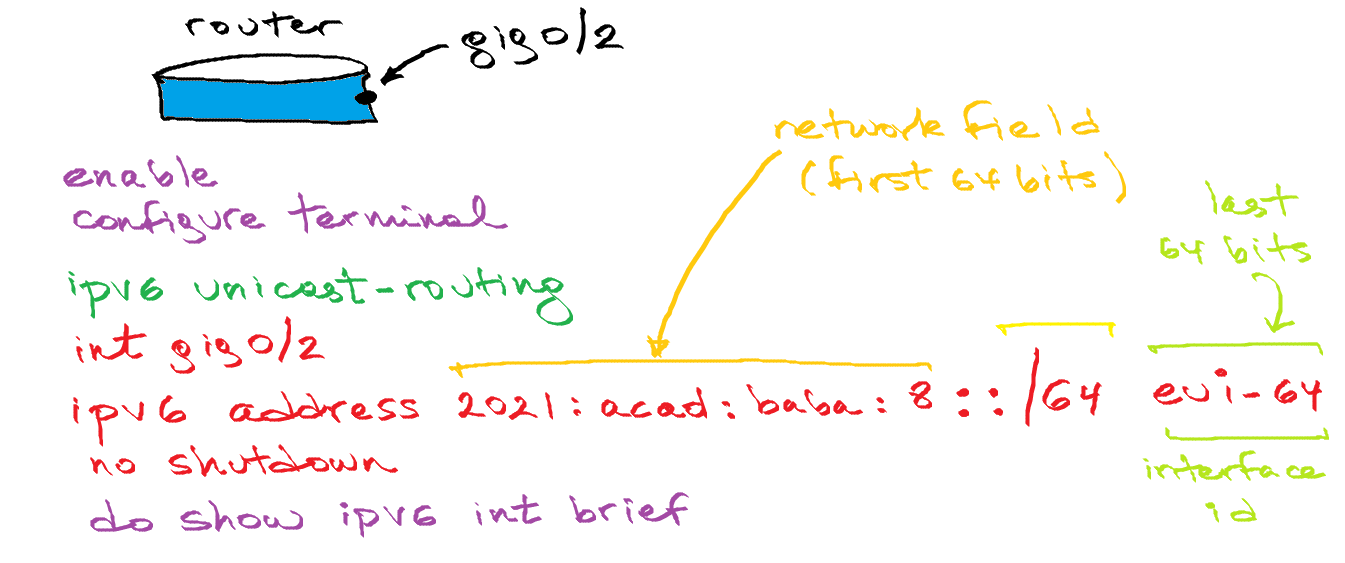 router
gig0/2
network field
(first 64 bits)
last
64 bits
enable
configure terminal
ipv6 unicast-routing
int gig0/2
ipv6 address 2021:acad:baba:8::/64 eui-64
no shutdown
interface
id
do show ipv6 int brief